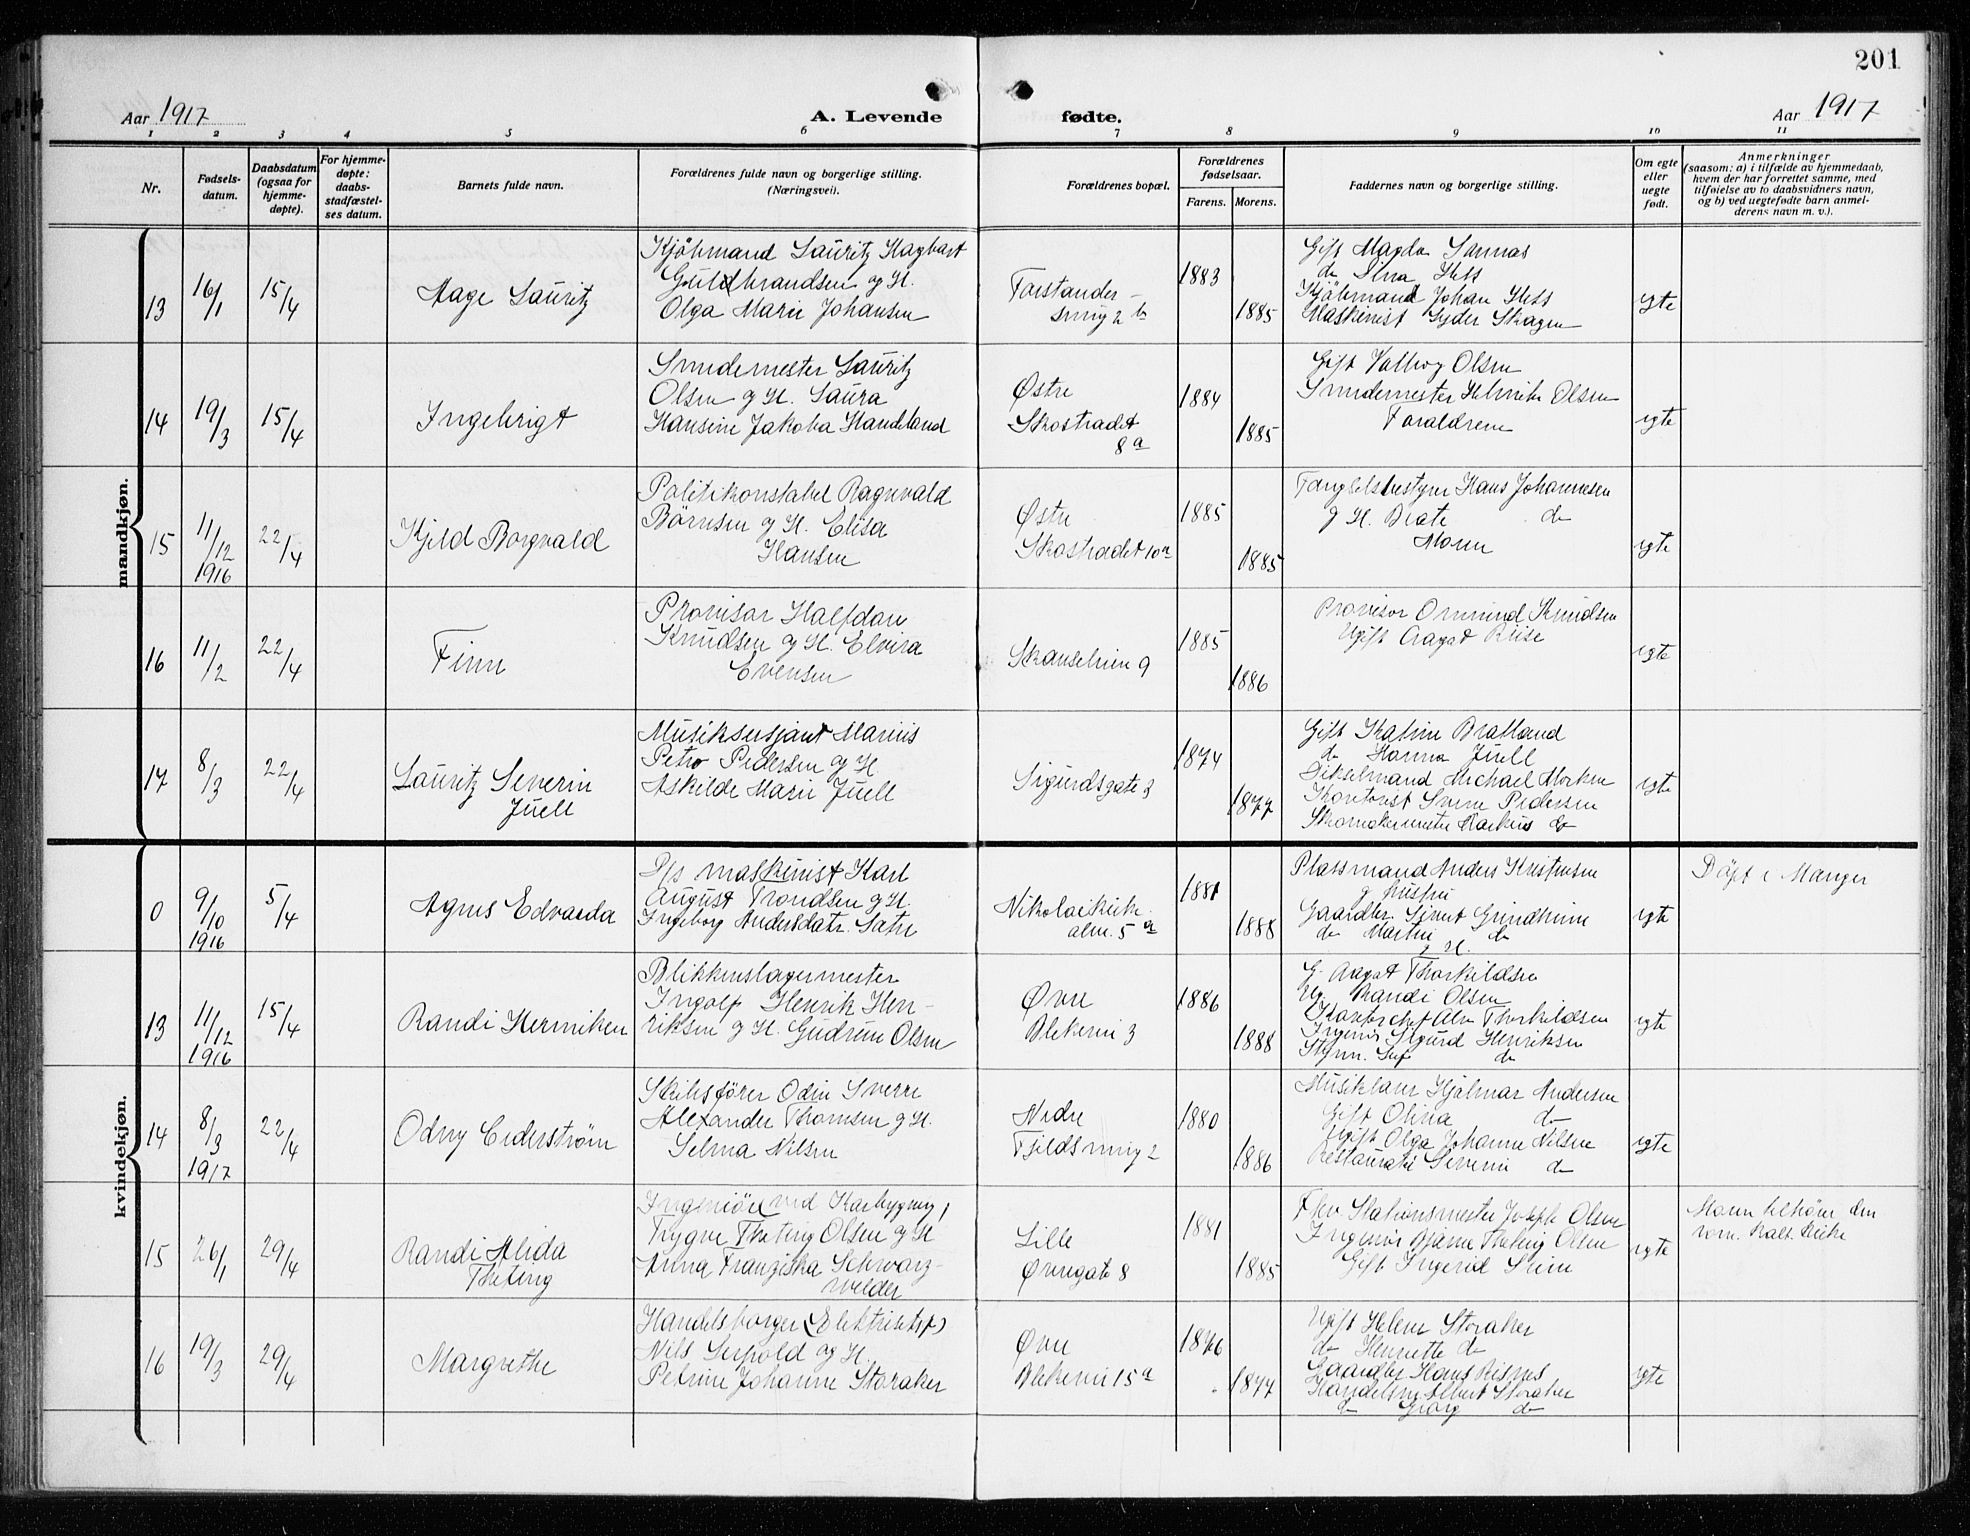 201
Aar 1917
A. Levende fødte.
Aar 1917
1 2 3 4 5 6 7 8 9 10 11
Nr.
Fødsels-
datum.
Daabsdatum
(ogsaa for
hjemme-
døpte).
For hjemme-
døpte:
daabs-
stadfæstel-
ses datum.
Barnets fulde navn.
Forældrenes fulde navn og borgerlige stilling.
(Næringsvei).
Forældrenes bopæl.
Forældrenes
fødselsaar.
Farens. Morens.
Faddernes navn og borgerlige stilling.
Om egte
eller
uegte
født.
Anmerkninger
(saasom: a) i tilfælde av hjemmedaab,
hvem der har forrettet samme, med
tilføielse av to daabsvidners navn,
og b) ved uegtefødte barn anmel-
derens navn m. v.).
mandkjøn.
13
16/1
15/4
Aage Lauritz
Kjøbmand Lauritz Hagbart
Guldbrandsen og H.
Olga Marie Johansen
Forstander-
smug 2 b
1883
1885
Gift Magda
do Dina Hess
Kjøbmand Johan Hess
Maskinist Skagen
egte
14
19/3
15/4
Ingebrigt
Smedemester Lauritz
Olsen og H. Laura
Hansine Jakoba Handeland
Østre
Skostrædet
8 a
1884
1885
Gift Valborg Olsen
Smedemester Olsen
Forældrene
egte
15
11/12
1916
22/4
Kjeld Borgvald
Politikonstabel Ragnvald
Børnsen og H. Elisa
Hansen
Østre
Skostrædet 10 a
1885
1885
Fængselsbestyrer Hans Johannesen
og H. Beate do
Moren
egte
16
11/2
22/4
Finn
Provisor Halfdan
Knudsen og H. Elvira
Evensen
Skansehien 9
1885
1886
Provisor Knudsen
Ugift Aagot Riise
egte
17
8/3
22/4
Lauritz Severin
Juell
Musiksersjant Marius
Petro Pedersen og H
Askilde Marie Juell
Sigurdsgate 3
1874
1877
Gift Katrine Bratland
do Hanna Juell
Michael
Kontorist Pedersen
Skomakermester Markus do
egte
kvindekjøn.
0
9/10
1916
5/4
Agnes Edvarda
D/s maskinist Karl
August Trondsen og H.
Ingeborg Andersdatr. Sætre
Nikolaikirke-
alm. 5 a
1881
1888
Platsmand Anders Kristensen
og hustru
Gaardbr. Sivert Grindheim
do Martin do
og H.
egte
Døpt i Manger
13
11/12
1916
15/4
Randi Henriken
Blikkenslagermester
Ingolf Henrik Hen-
riksen og H. Gudrun Olsen
Øvre
Blekevei 3
1886
1888
G. Aagot Thorkildsen
Ug. Randi Olsen
Alv Thorkildsen
Ingeniør Sigurd Henriksen
Styrm. do
egte
14
8/3
1917
22/4
Odny Cederstrøm
Skibsfører Odin Sverre
Alexander Thomsen og H.
Selma Nilsen
Nedre
Fjeldsmug 2
1880
1886
Musiklærer Hjalmar Andersen
Gift Olina do
Ugift Olga Johanne Nilsen
Severin do
egte
15
26/1
29/4
Randi Alida
Theting
Ingeniør (ved Havbygning)
Trygve Theting Olsen og H
Anna Franziska Schwarz-
welder
Lille
Øvregate 8
1881
1885
Fhv Stationsmester Joseph Olsen
Ingeniør Bjarne Theting Olsen
Gift Ingerid
egte
Moren tilhører den
rom. kath. kirke
16
19/3
29/4
Margrethe
Handelsborger (Elektriker)
Nils og H.
Petrine Johanne Storaker
Øvre
Blekevei 15 a
1876
1877
Ugift Helene Storaker
do Henriette do
Gaardbr Hans
Albert Storaker
do Georg do
egte